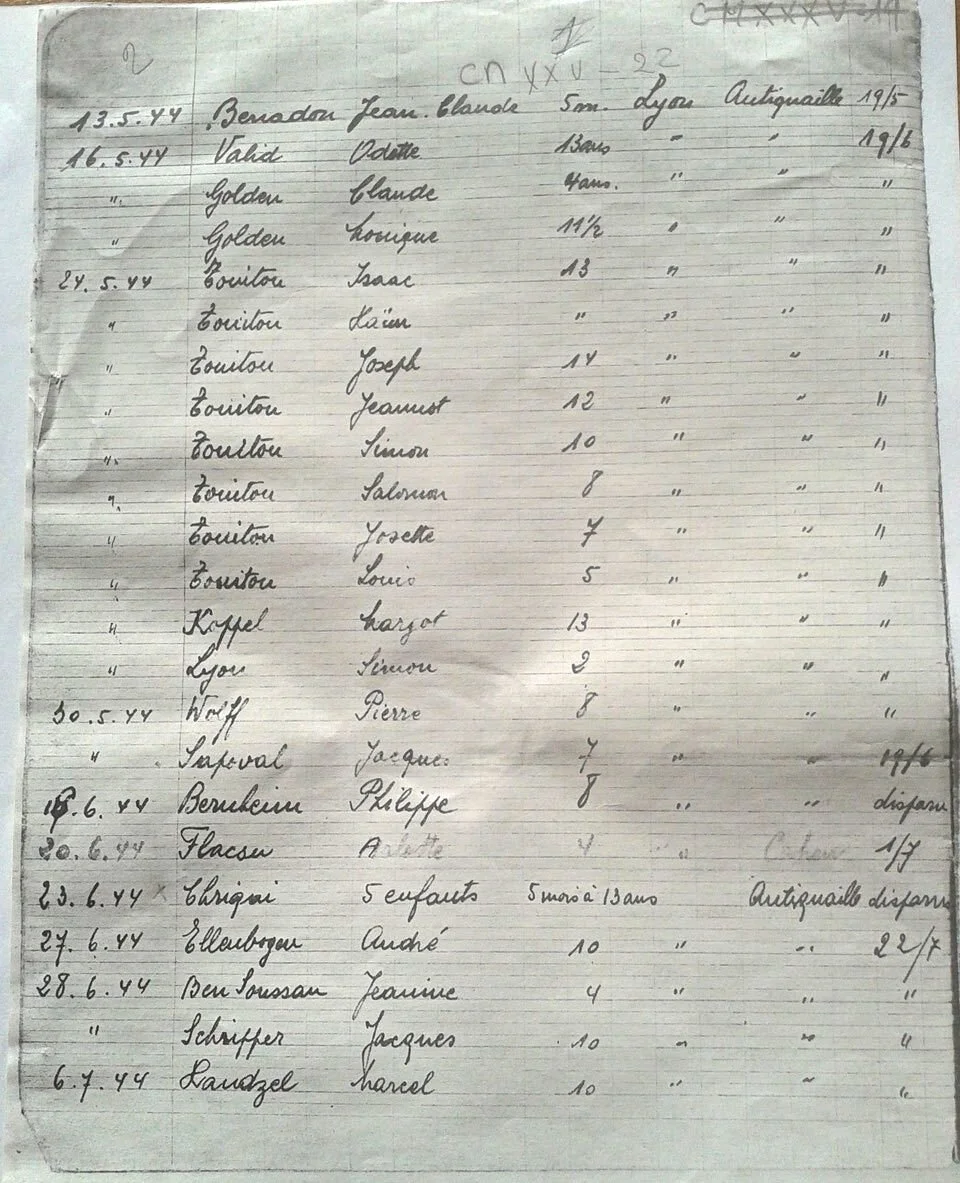 CM XXXV-14
2 1
CM XXV - 22
13.5.44 Benadon Jean-Claude 5 m. Lyon Antiquaille 19/5
16.5.44 Valid Odette 13 ans " " 19/6
" Golden Claude 4 ans. " " "
" Golden Monique 11 1/2 " " "
24.5.44 Touitou Isaac 13 " " "
" Touitou Haïm " " " "
" Touitou Joseph 14 " " "
" Touitou Jeannot 12 " " "
" Touitou Simon 10 " " "
" Touitou Salomon 8 " " "
" Touitou Josette 7 " " "
" Touitou Louis 5 " " "
" Koppel Margot 13 " " "
" Lyon Simon 2 " " "
30.5.44 Wolff Pierre 8 " " "
" Sapoval Jacques 7 " " 19/6
.6.44 Bernheim Philippe 8 " " disparu
20.6.44 Flacsu Arlette 4 " 1/7
23.6.44 x Chriqui 5 enfants 5 mois à 13 ans Antiquaille disparu
27.6.44 Ellenbogen André 10 " " 22/7
28.6.44 Ben Soussan Jeanine 4 " " "
" Schriffer Jacques 10 " " "
6.7.44 Handzel Marcel 10 " " "